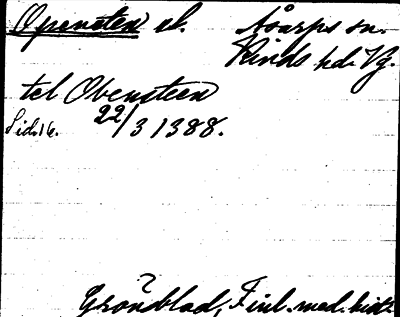 Opensten sl. Åsarps sn.
Kinds hd. Vg.
tel Obensteen
Sid. 16. 22/3 1388.
?
Grönblad, Finl. med. hist.